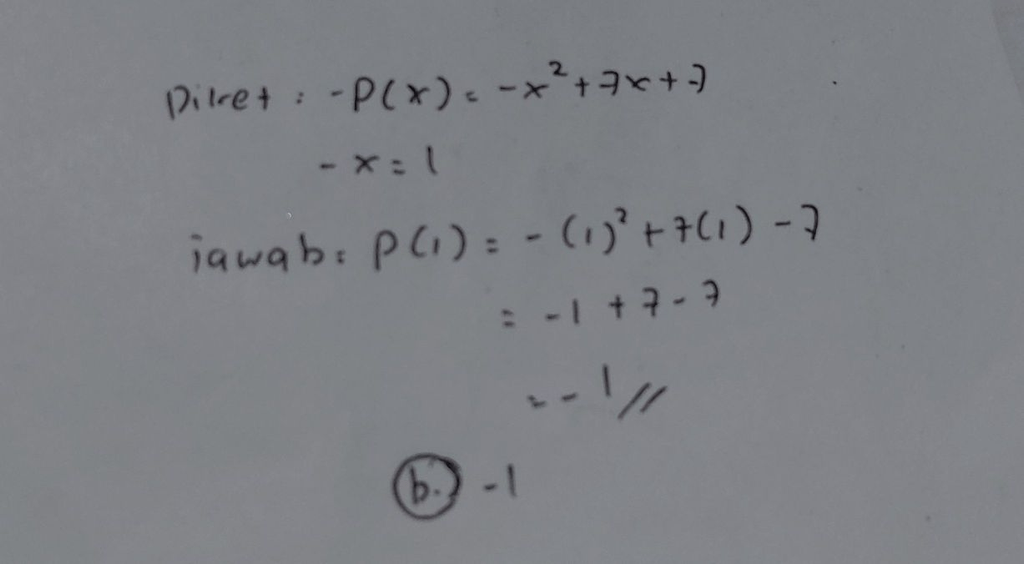 Diket : - P(x) = -x² + 7x + 7
- x = 1
jawab : P(1) = - (1)² + 7(1) - 7
= -1 + 7 - 7
= -1 //
b. -1